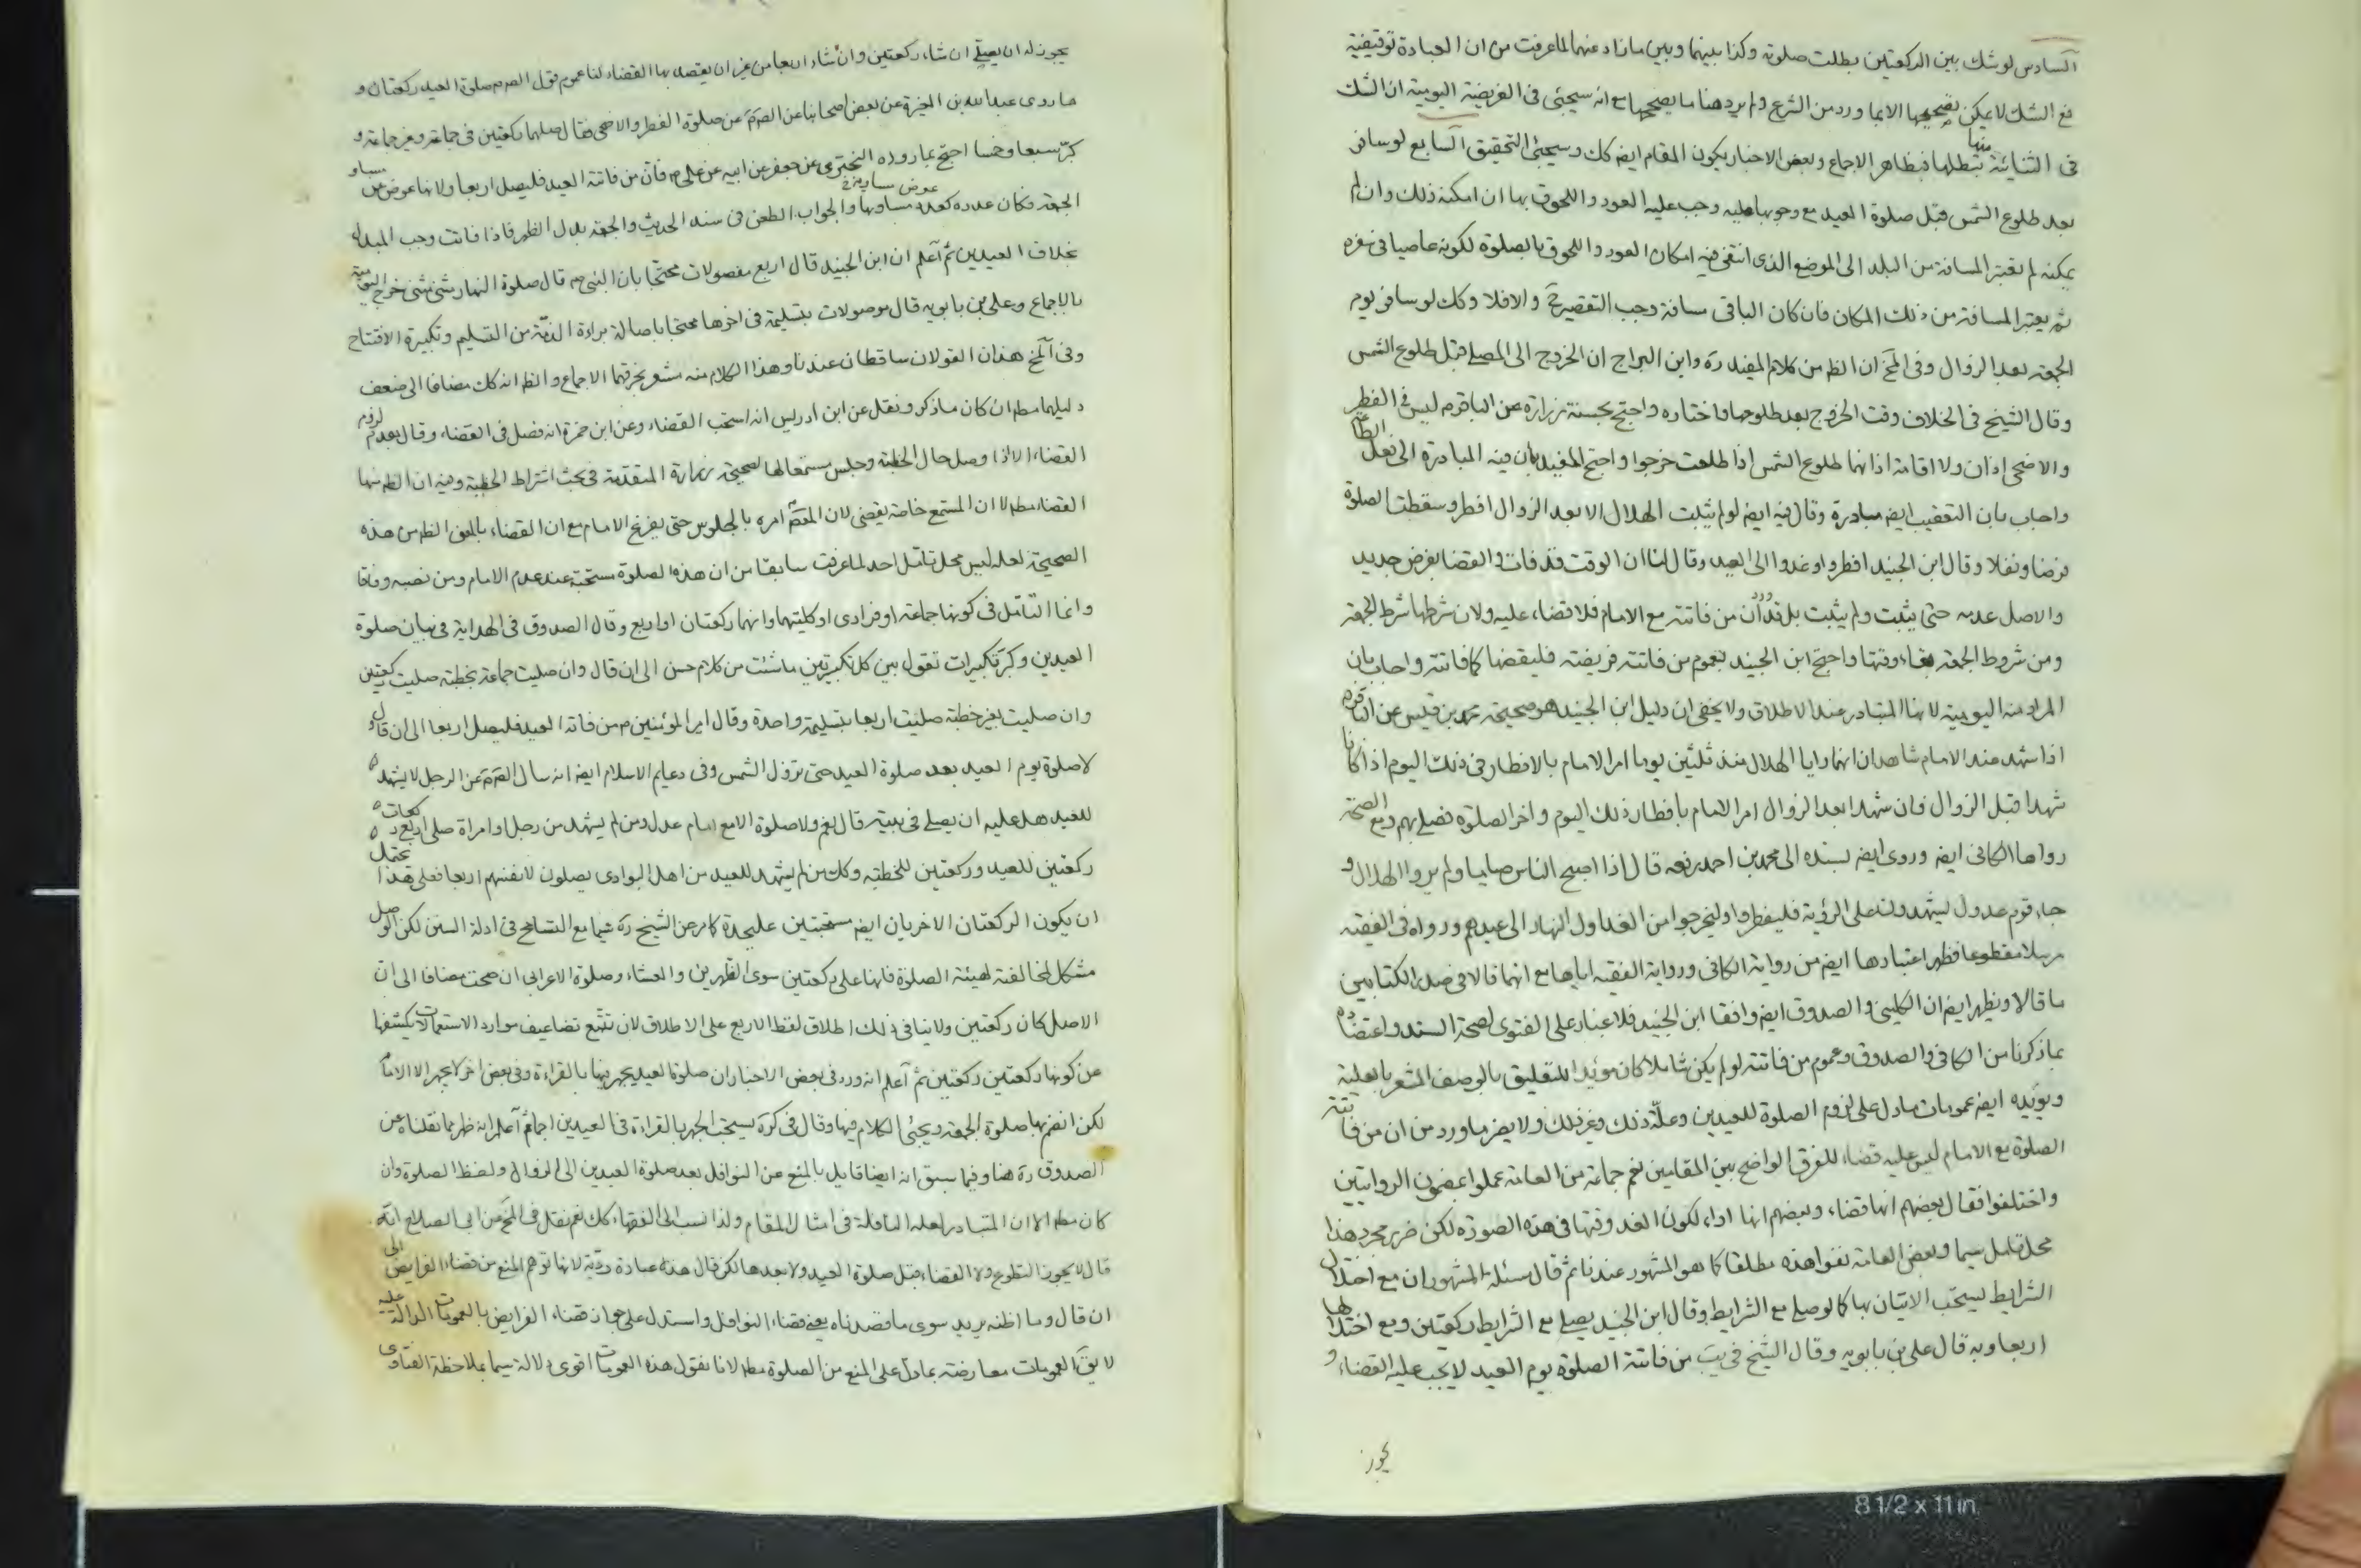 السادس لو شك بين الركعتين بطلت صلوته وكذا بينهما وبين ما زاد عنهما لما عرفت من ان العبادة توقيفية
فمع الشك لا يمكن تصحيحها الا بما ورد من الشرع ولم يرد هنا ما يصححها مع انه سيجئ في الفريضة اليومية ان الشك
في الثنائية منها تبطلها فبظاهر الاجماع وبعض الاخبار يكون المقام ايض كك وسيجئ التحقيق السابع لو سافر
بعد طلوع الشمس قبل صلوة العيد مع وجوبها عليه وجب عليه العود واللحوق بها ان امكنه ذلك وان لم
يمكنه لم تعتبر المسافة من البلد الى الموضع الذى انتفى فيه امكان العود واللحوق بالصلوة لكونه عاصيا فى سفره
ثم يعتبر المسافة من ذلك المكان فان كان الباقى مسافة وجب التقصير ح والا فلا وكك لو سافر يوم
الجمعة بعد الزوال وفى المخ ان الظ من كلام المفيد ره وابن البراج ان الخروج الى المصلى قبل طلوع الشمس
وقال الشيخ فى الخلاف وقت الخروج بعد طلوعها فاختاره واحتج بحسنة زرارة عن الباقر م ليس فى الفطر
والاضحى اذان ولا اقامة اذانهما طلوع الشمس اذا طلعت خرجوا واحتج المفيد بان فيه المبادرة الى فعل الطا
واجاب بان التعقيب ايض مبادرة وقال فيه ايض لو لم يثبت الهلال الا بعد الزوال افطر وسقطت الصلوة
فرضا ونفلا وقال ابن الجنيد افطروا وغدوا الى العيد وقال لنا ان الوقت قد فات والقضا بفرض جديد
والاصل عدمه حتى يثبت ولم يثبت بل ان من فاتته مع الامام فلا قضاء عليه ولان شرطها شرط الجمعة
ومن شروط الجمعة بقاء وقتها واحتج ابن الجنيد بعموم من فاتته فريضة فليقضها كما فاتته واجاب بان
المراد منه اليومية لانها المتبادر عند الاطلاق ولا يخفى ان دليل ابن الجنيد هو صحيحة محمد بن قيس عن الباقر م
اذا شهد عند الامام شاهدان انهما رايا الهلال منذ ثلثين يوما امر الامام بالافطار فى ذلك اليوم اذا كانا
شهدا قبل الزوال فان شهدا بعد الزوال امر الامام بافطار ذلك اليوم واخر الصلوة فصلى بهم ومع الصحة
رواها الكافى ايض وروى ايض بسنده الى محمد بن احمد رفعه قال اذا اصبح الناس صياما ولم يروا الهلال و
جاء قوم عدول يشهدون على الرؤية فليفطروا وليخرجوا من الغد اول النهار الى عيدهم ورواه فى الفقيه
مرسلا مقطوعا فظهر اعتبارها ايض من رواية الكافى ورواية الفقيه اياها مع انهما قالا فى صدر الكتابين
ما قالا ويظهر ايض ان الكلينى والصدوق ايض وافقا ابن الجنيد فلا غبار على الفتوى لصحة السند واعتضاده
بما ذكرنا من الكافى والصدوق وعموم من فاتته لو لم يكن شاملا كان مؤيدا للتعليق بالوصف المشعر بالعلية
ويؤيده ايض عمومات ما دل على لزوم الصلوة للعيدين وعلة ذلك وغير ذلك ولا يضر ما ورد من ان من فاتته
الصلوة مع الامام ليس عليه قضاء للفرق الواضح بين المقامين نعم جماعة من العامة عملوا بمضمون الروايتين
واختلفوا فقال بعضهم انها قضاء وبعضهم انها اداء لكون الغد وقتها فى هذه الصورة لكن ضرر مجرد هذا
محل تامل سيما وبعض العامة نفوا هذه مطلقا كما هو المشهور عندنا ثم قال مسئلة المشهور ان مع اختلال
الشرايط يستحب الاتيان بها كما لو صلى مع الشرايط وقال ابن الجنيد يصلى مع الشرايط ركعتين ومع اختلالها
اربعا وبه قال على بن بابويه وقال الشيخ فى يب من فاتته الصلوة يوم العيد لا يجب عليه القضاء و
يجوز
يجوز له ان يصلى ان شاء ركعتين وان شاء اربعا من غير ان يقصد بها القضاء لنا عموم قول الص م صلوة العيد ركعتان و
ما روى عبد الله بن المغيرة عن بعض اصحابنا عن الص م عن صلوة الفطر والاضحى فقال صلهما ركعتين فى جماعة وغير جماعة و
كبر سبعا وخمسا احتج بما رواه البخترى عن جعفر عن ابيه عن على م قال من فاتته العيد فليصل اربعا ولانها عوض من
الجمعة فكان عدده كعدد مساويها والجواب الطعن فى سند الحديث والجمعة بدل الظهر فاذا فاتت وجب المبدل
بخلاف العيدين ثم اعلم ان ابن الجنيد قال اربع مفصولات محتجا بان النبى ص قال صلوة النهار مثنى مثنى خرج اليومية
بالاجماع وعلى بن بابويه قال موصولات بتسليمة فى اخرها محتجا باصالة براءة الذمة من التسليم وتكبيرة الافتتاح
وفى المخ هذان القولان ساقطان عندنا وهذا الكلام منه مشعر بخرقهما الاجماع والظ انه كك مضافا الى ضعف
دليلهما مط ان كان ما ذكر ونقل عن ابن ادريس انه استحب القضاء وعن ابن حمزة انه فصل فى القضاء وقال بعدم لزوم
القضاء الا اذا وصل حال الخطبة وجلس مستمعا لها لصحيحة زرارة المتقدمة فى بحث اشتراط الخطبة وفيه ان الظ منها
القضاء مط لا ان المستمع خاصة يقضى لان المعص امره بالجلوس حتى يفرغ الامام مع ان القضاء بالمعنى الظ من هذه
الصحيحة لعله ليس محل تامل احد لما عرفت سابقا من ان هذه الصلوة مستحبة عند عدم الامام ومن نصبه وفاقا
وانما التامل فى كونها جماعة او فرادى او كليتهما وانها ركعتان او اربع وقال الصدوق فى الهداية فى بيان صلوة
العيدين وكبر تكبيرات تقول بين كل تكبيرتين ما شئت من كلام حسن الى ان قال وان صليت جماعة بخطبة صليت ركعتين
وان صليت بغير خطبة صليت اربعا بتسليمة واحدة وقال امير المؤمنين م من فاته العيد فليصل اربعا الى ان قال و
لا صلوة يوم العيد بعد صلوة العيد حتى تزول الشمس وفى دعايم الاسلام ايض انه سال الص م عن الرجل لا يشهد
للعيد هل عليه ان يصلى فى بيته قال نعم ولا صلوة الا مع امام عدل ومن لم يشهد من رجل او امراة صلى اربع ركعات
ركعتين للعيد وركعتين للخطبة وكك من لم يشهد للعيد من اهل البوادى يصلون لانفسهم اربعا فعلى هذا يحتمل
ان يكون الركعتان الاخريان ايض مستحبتين عليحدة كما مر عن الشيخ ره سيما مع التسامح فى ادلة السنن لكن الوصل
مشكل لمخالفته لهيئة الصلوة فانها على ركعتين سوى الظهرين والعشاء وصلوة الاعرابى ان صحت مضافا الى ان
الاصل كان ركعتين ولا ينافى ذلك اطلاق لفظ الاربع على الاطلاق لان تتبع تضاعيف موارد الاستعمالات يكشفها
عن كونها ركعتين ركعتين ثم اعلم انه ورد فى بعض الاخبار ان صلوة العيد يجهر فيها بالقراءة وفى بعض اخر لا يجهر الا الامام
لكن انضم بها صلوة الجمعة ويجئ الكلام فيها وقال فى كرة يستحب الجهر بالقراءة فى العيدين اجماعا ثم اعلم انه ظهر مما نقلناه عن
الصدوق ره هنا وفيما سبق انه ايضا قايل بالمنع عن النوافل بعد صلوة العيدين الى الزوال ولفظ الصلوة وان
كان مط الا ان المتبادر لعله النافلة فى امثال المقام ولذا نسب الى الفقهاء كك نعم نقل فى المخ عن ابى الصلاح انه
قال لا يجوز التطوع ولا القضاء قبل صلوة العيد ولا بعدها لكن قال هذه عبادة ردية لانها توهم المنع من قضاء الفرايض الى
ان قال وما اظنه يريد سوى ما قصدناه يعنى قضاء النوافل واستدل على جواز قضاء الفرايض بالعمومات الدالة عليه
لا يق العمومات معارضة بما دل على المنع من الصلوة مط لانا نقول هذه العمومات اقوى دلالة سيما بملاحظة الفتاوى